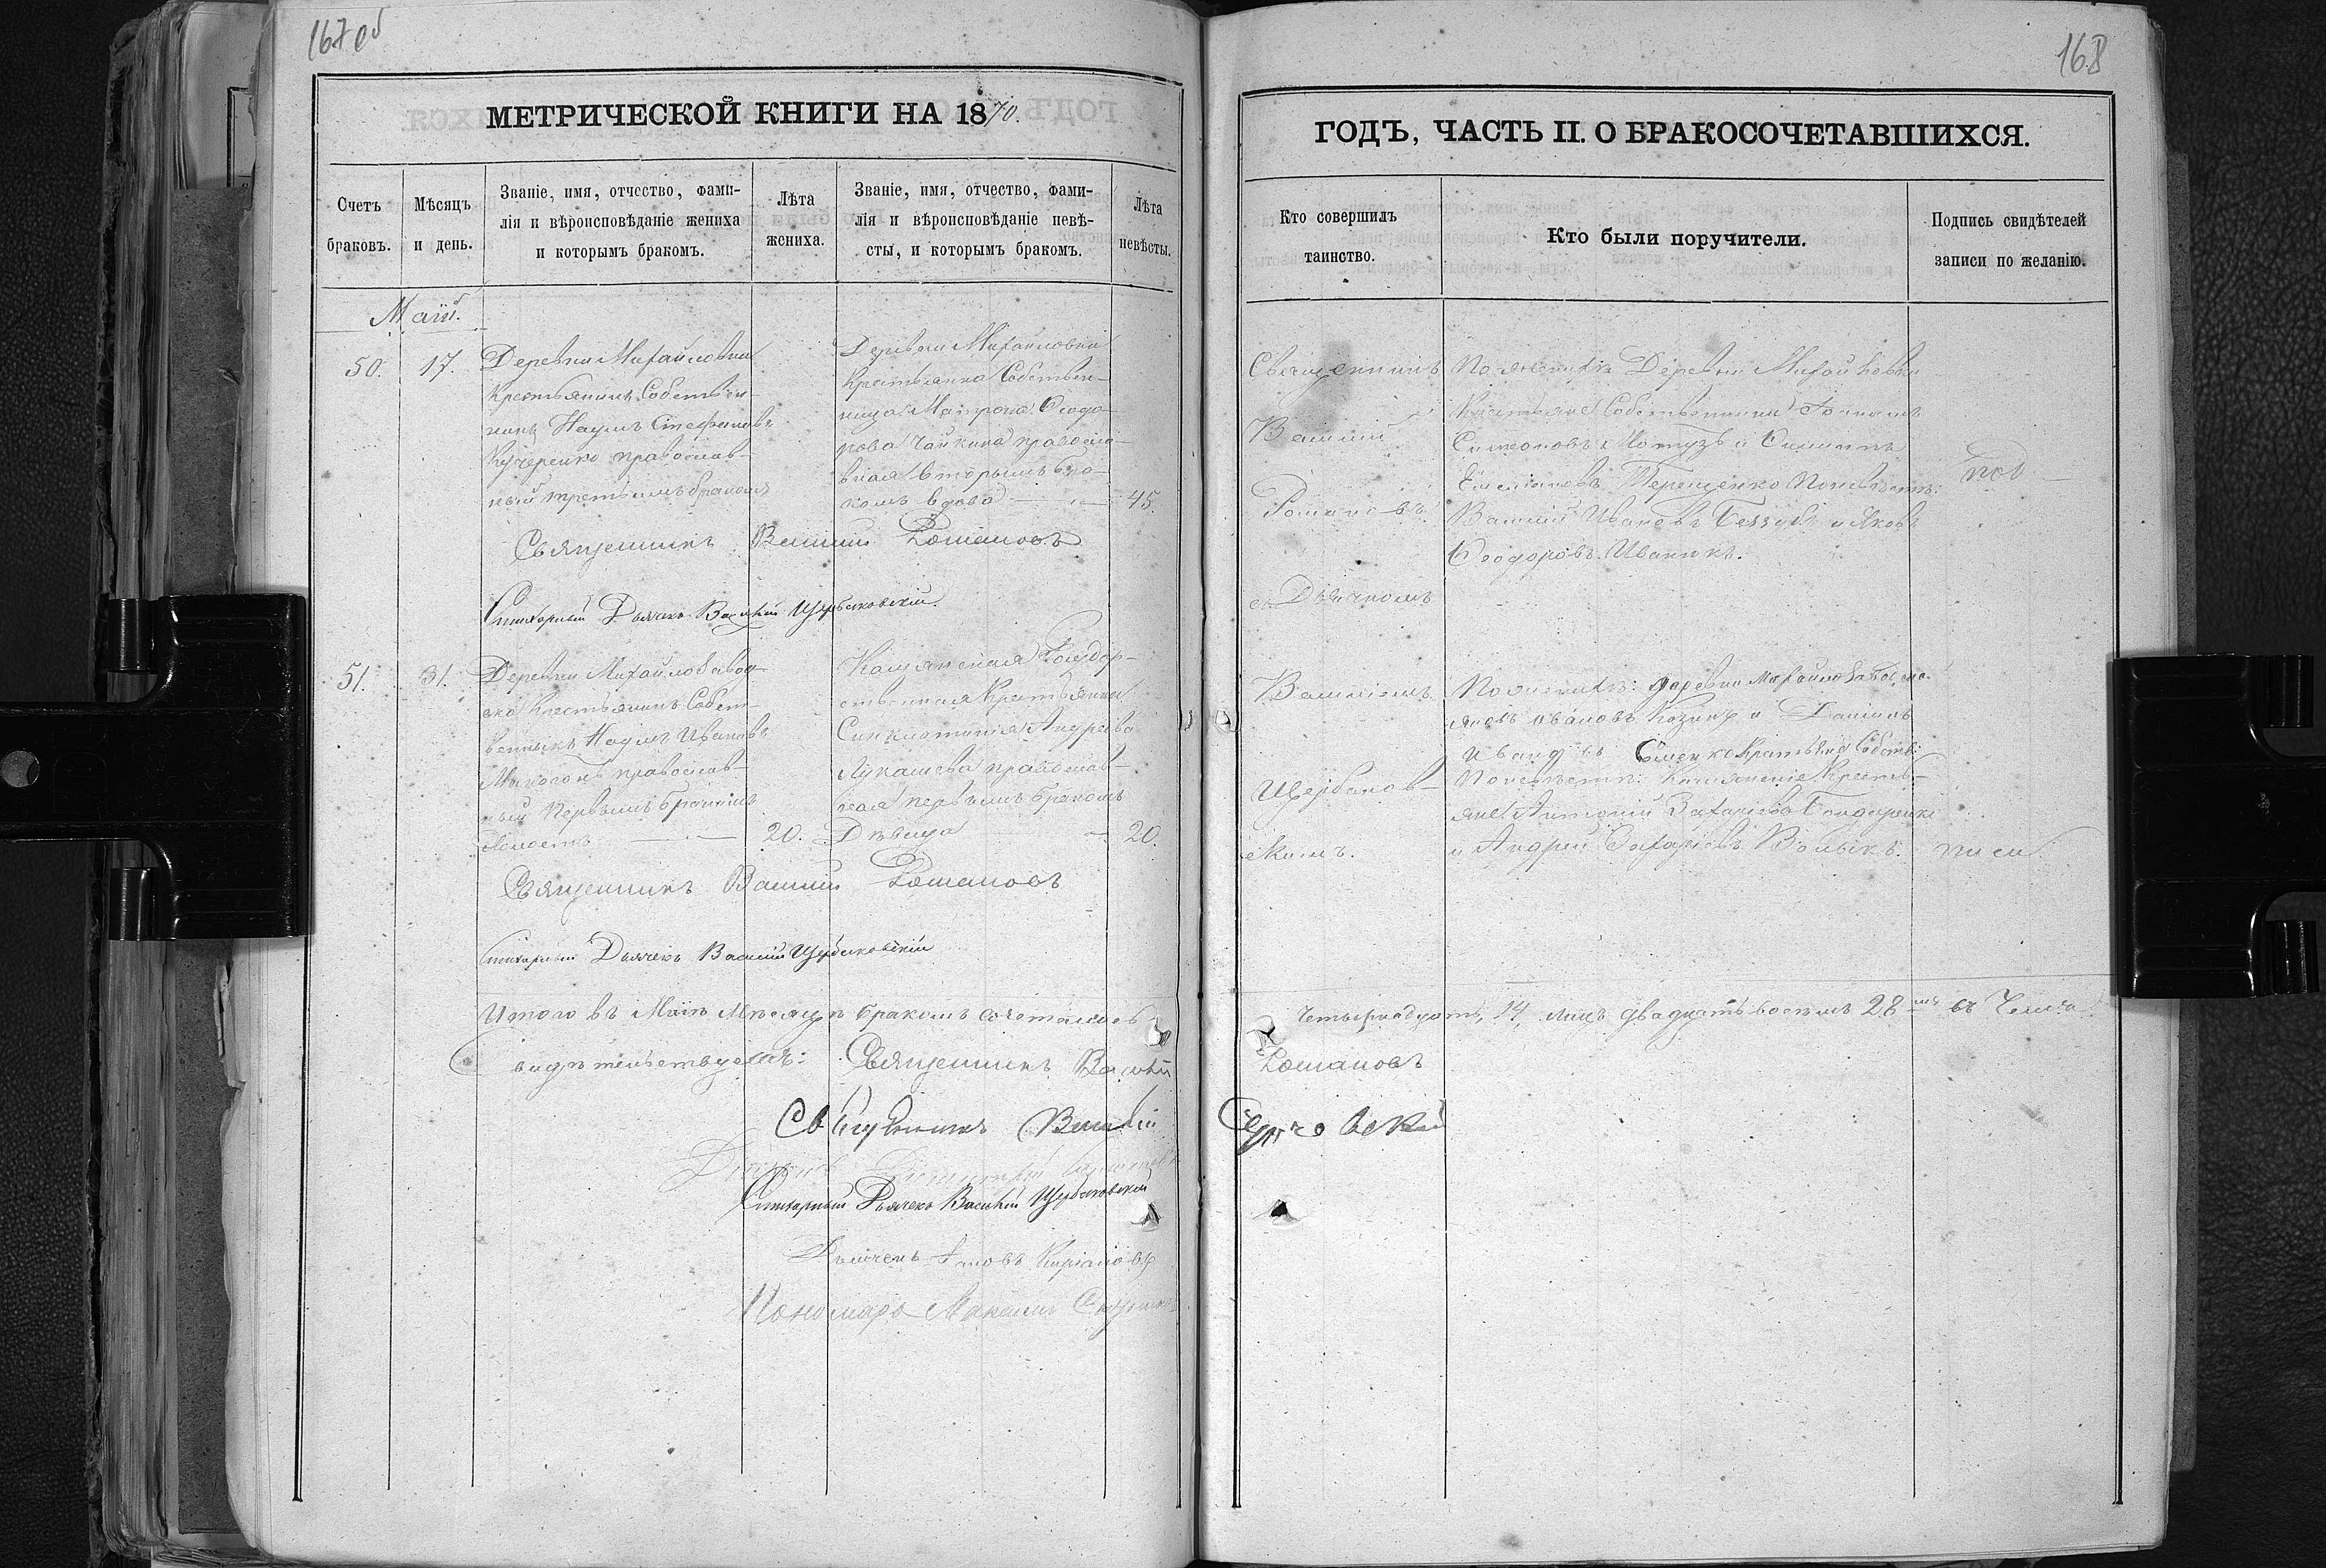 167 об
МЕТРИЧЕСКОЙ КНИГИ НА 1870.
Счетъ браковъ.
Мѣсяцъ и день.
Званіе, имя, отчество, фами-
лія и вѣроисповѣданіе жениха
и которымъ бракомъ.
Лѣта жениха.
Званіе, имя, отчество, фами-
лія и вѣроисповѣданіе невѣ-
сты, и которымъ бракомъ.
Лѣта невѣсты.
Май.
50.
17.
Деревни Михайловки
Крестьянинъ Собствен-
никъ Наумъ Стефановъ
Кучеренко православ-
ный третьимъ бракомъ
Деревни Михайловки
Крестьянка Собствен-
ница Матрона Ѳеодо-
рова Чайкина правосла-
вная вторымъ бра-
комъ вдова
45.
Священникъ Василій Романовъ
Стихарный Дьячекъ Василій Щербаковскій.
51.
31.
Деревни Михайлозавод-
ска Крестьянинъ Собст-
венникъ Наумъ Ивановъ
православ-
ный первымъ бракомъ
20.
Государ-
ственная Крестьянка
Синклитикія Андреева
Лукашева православ-
ная первымъ бракомъ
Дѣвица
20.
Священникъ Василій Романовъ
Стихарный Дьячекъ Василій Щербаковскій
Итого въ Маіѣ Мѣсяцѣ бракомъ сочеталось
видѣтельствуемъ: Священникъ Василій
Священникъ Василій
Стихарный Дьячекъ Василій Щербаковскій
Дьячекъ Іаковъ
Пономарь Максимъ
168
ГОДЪ, ЧАСТЬ II. О БРАКОСОЧЕТАВШИХСЯ.
Кто совершилъ таинство.
Кто были поручители.
Подпись свидѣтелей записи по желанію.
Священникъ
Василій
Романовъ
съ Дьячкомъ
Василіемъ
Щербаков-
скимъ.
По женихѣ Деревни Михайловки
Крестьяне Собственники
Симеоновъ Мотузъ и
Емеліановъ Терещенко По невѣстѣ:
Василій Ивановъ Беззубъ и Яковъ
Ѳеодоровъ Иваникъ.
под
По женихѣ: Деревни Михайлозаводска
Яковъ Ивановъ и Даніилъ
Ивановъ Крестьяне Собств:
По невѣстѣ: Крестъ-
яне Антоній Захаріевъ Бондаренко
и Андрей Захаріевъ Волыкъ.
писи.
Четырнадцать, 14, лицъ двадцать восемь 28 въ чемъ и
Романовъ